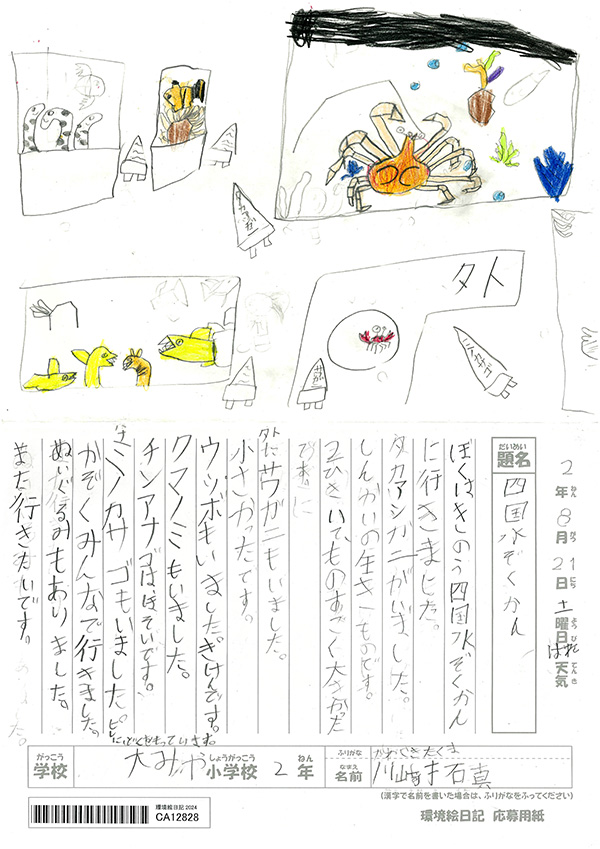 タカアシガニ
外
ミノカサゴ
2年8月21日土曜日はれ天気
ねん
がつ
にち
よう
び
てんき
だいめい
題名
四国水ぞくかん
ぼくはきのう四国水ぞくかん
に行きました。
タカアシガニがいました。
しんかいの生きものです。
2ひきいてものすごく大きかった
です。
外にサワガニもいました。
小さかったです。
ウツボもいました。きけんです。
クマノミもいました。
チンアナゴは、ほそいです。
ミノカサゴもいました。ヒレ
にどくをもっています。
かぞくみんなで行きました。
ぬいぐるみもありました。
また行きたいです。
がっこう
学校
大みや小学校2年
しょうがっこう
ねん
ふりがな
なまえ
名前
(漢字で名前を書いた場合は、ふりがなをふってください)
環境絵日記2024
CA12828
環境絵日記 応募用紙